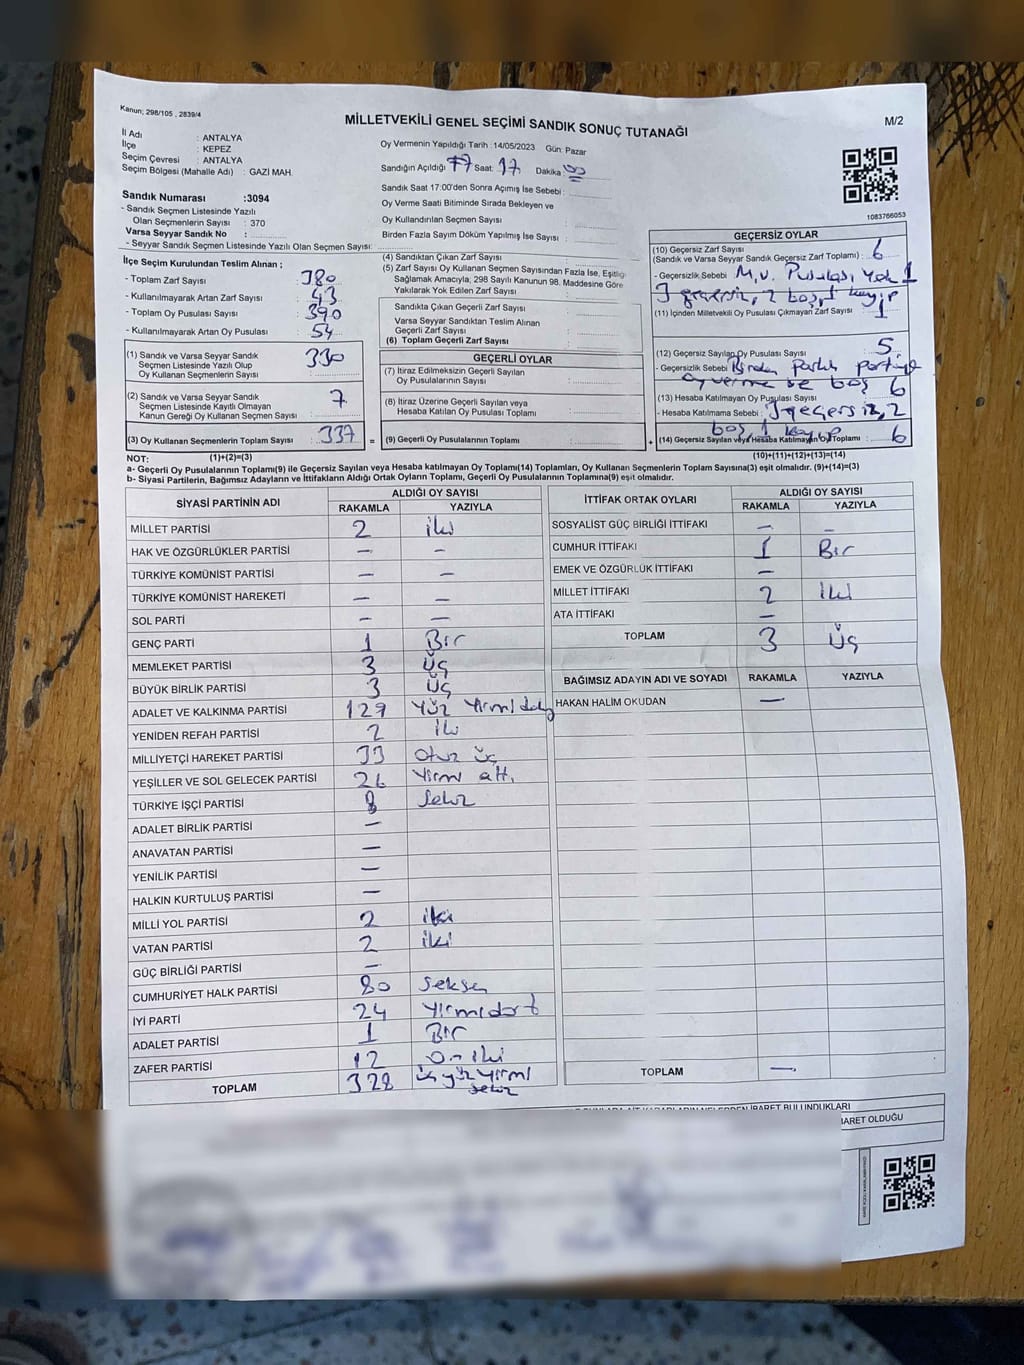 Kanun; 298/105 , 2839/4
MİLLETVEKİLİ GENEL SEÇİMİ SANDIK SONUÇ TUTANAĞI
M/2
İl Adı : ANTALYA
İlçe : KEPEZ
Seçim Çevresi : ANTALYA
Seçim Bölgesi (Mahalle Adı) : GAZİ MAH.
Oy Vermenin Yapıldığı Tarih : 14/05/2023 Gün: Pazar
Sandığın Açıldığı Saat: 17 Dakika 00
Sandık Saat 17:00'den Sonra Açımış İse Sebebi :
Oy Verme Saati Bitiminde Sırada Bekleyen ve
Oy Kullandırılan Seçmen Sayısı :
Birden Fazla Sayım Döküm Yapılmış İse Sayısı :
1083766053
Sandık Numarası :3094
- Sandık Seçmen Listesinde Yazılı
Olan Seçmenlerin Sayısı : 370
Varsa Seyyar Sandık No :
- Seyyar Sandık Seçmen Listesinde Yazılı Olan Seçmen Sayısı:
İlçe Seçim Kurulundan Teslim Alınan ;
- Toplam Zarf Sayısı : 380
- Kullanılmayarak Artan Zarf Sayısı : 43
- Toplam Oy Pusulası Sayısı : 390
- Kullanılmayarak Artan Oy Pusulası : 54
(1) Sandık ve Varsa Seyyar Sandık
Seçmen Listesinde Yazılı Olup
Oy Kullanan Seçmenlerin Sayısı : 330
(2) Sandık ve Varsa Seyyar Sandık
Seçmen Listesinde Kayıtlı Olmayan
Kanun Gereği Oy Kullanan Seçmen Sayısı : 7
(3) Oy Kullanan Seçmenlerin Toplam Sayısı : 337
(4) Sandıktan Çıkan Zarf Sayısı :
(5) Zarf Sayısı Oy Kullanan Seçmen Sayısından Fazla İse, Eşitliği
Sağlamak Amacıyla; 298 Sayılı Kanunun 98. Maddesine Göre
Yakılarak Yok Edilen Zarf Sayısı :
Sandıkta Çıkan Geçerli Zarf Sayısı :
Varsa Seyyar Sandıktan Teslim Alınan
Geçerli Zarf Sayısı :
(6) Toplam Geçerli Zarf Sayısı :
GEÇERLİ OYLAR
(7) İtiraz Edilmeksizin Geçerli Sayılan
Oy Pusulalarının Sayısı :
(8) İtiraz Üzerine Geçerli Sayılan veya
Hesaba Katılan Oy Pusulası Toplamı :
= (9) Geçerli Oy Pusulalarının Toplamı :
GEÇERSİZ OYLAR
(10) Geçersiz Zarf Sayısı
(Sandık ve Varsa Seyyar Sandık Geçersiz Zarf Toplamı) : 6
- Geçersizlik Sebebi : M.V. Pusulası Yok 1
3 geçersiz, 2 boş, 1 kayıp
(11) İçinden Milletvekili Oy Pusulası Çıkmayan Zarf Sayısı : 1
(12) Geçersiz Sayılan Oy Pusulası Sayısı : 5
- Geçersizlik Sebebi Birden Fazla partiye
oy verme ve boş 6
(13) Hesaba Katılmayan Oy Pusulası Sayısı :
- Hesaba Katılmama Sebebi : 3 geçersiz, 2
boş 1 kayıp
+ (14) Geçersiz Sayılan veya Hesaba Katılmayan Oy Toplamı : 6
NOT: (1)+(2)=(3) (10)+(11)+(12)+(13)=(14)
a- Geçerli Oy Pusulalarının Toplamı(9) ile Geçersiz Sayılan veya Hesaba katılmayan Oy Toplamı(14) Toplamları, Oy Kullanan Seçmenlerin Toplam Sayısına(3) eşit olmalıdır. (9)+(14)=(3)
b- Siyasi Partilerin, Bağımsız Adayların ve İttifakların Aldığı Ortak Oyların Toplamı, Geçerli Oy Pusulalarının Toplamına(9) eşit olmalıdır.
SİYASİ PARTİNİN ADI ALDIĞI OY SAYISI
RAKAMLA YAZIYLA
MİLLET PARTİSİ 2 iki
HAK VE ÖZGÜRLÜKLER PARTİSİ – –
TÜRKİYE KOMÜNİST PARTİSİ – –
TÜRKİYE KOMÜNİST HAREKETİ – –
SOL PARTİ – –
GENÇ PARTİ 1 Bir
MEMLEKET PARTİSİ 3 Üç
BÜYÜK BİRLİK PARTİSİ 3 Üç
ADALET VE KALKINMA PARTİSİ 129 Yüz Yirmi
YENİDEN REFAH PARTİSİ 2 iki
MİLLİYETÇİ HAREKET PARTİSİ 33 Otuz üç
YEŞİLLER VE SOL GELECEK PARTİSİ 26 Yirmi altı
TÜRKİYE İŞÇİ PARTİSİ 8 Sekiz
ADALET BİRLİK PARTİSİ –
ANAVATAN PARTİSİ –
YENİLİK PARTİSİ –
HALKIN KURTULUŞ PARTİSİ –
MİLLİ YOL PARTİSİ 2 iki
VATAN PARTİSİ 2 iki
GÜÇ BİRLİĞİ PARTİSİ –
CUMHURİYET HALK PARTİSİ 80 Seksen
İYİ PARTİ 24 Yirmidört
ADALET PARTİSİ 1 Bir
ZAFER PARTİSİ 12 On iki
TOPLAM 328 üç yüz yirmi
sekiz
İTTİFAK ORTAK OYLARI ALDIĞI OY SAYISI
RAKAMLA YAZIYLA
SOSYALİST GÜÇ BİRLİĞİ İTTİFAKI – –
CUMHUR İTTİFAKI 1 Bir
EMEK VE ÖZGÜRLÜK İTTİFAKI –
MİLLET İTTİFAKI 2 iki
ATA İTTİFAKI –
TOPLAM 3 Üç
BAĞIMSIZ ADAYIN ADI VE SOYADI RAKAMLA YAZIYLA
HAKAN HALİM OKUDAN –
TOPLAM –
İBARET BULUNDUKLARI
BARET OLDUĞU